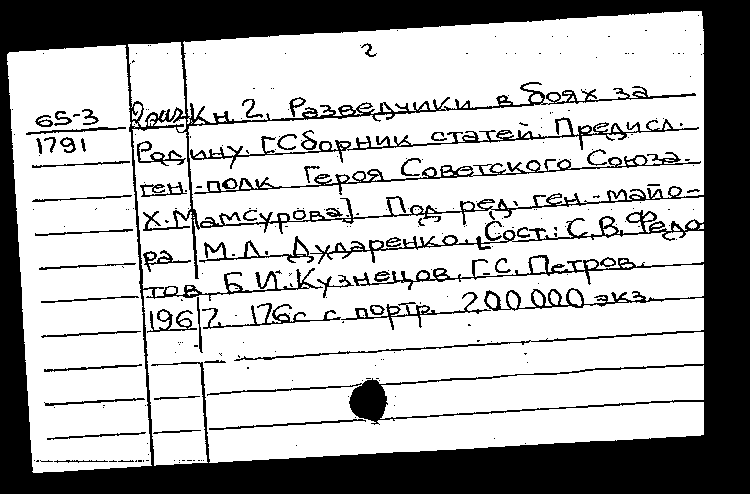 2
65-3 2 экз Кн. 2. Разведчики в боях за
1791 Родину. [Сборник статей. Предисл.
ген.-полк Героя Советского Союза.
Х. Мамсурова]. Под ред. ген.-майо-
ра М.Л. Дударенко. [Сост.: С.В. Федо
тов, Б.И. Кузнецов, Г.С. Петров.
1967. 176с с портр. 200 000 экз.